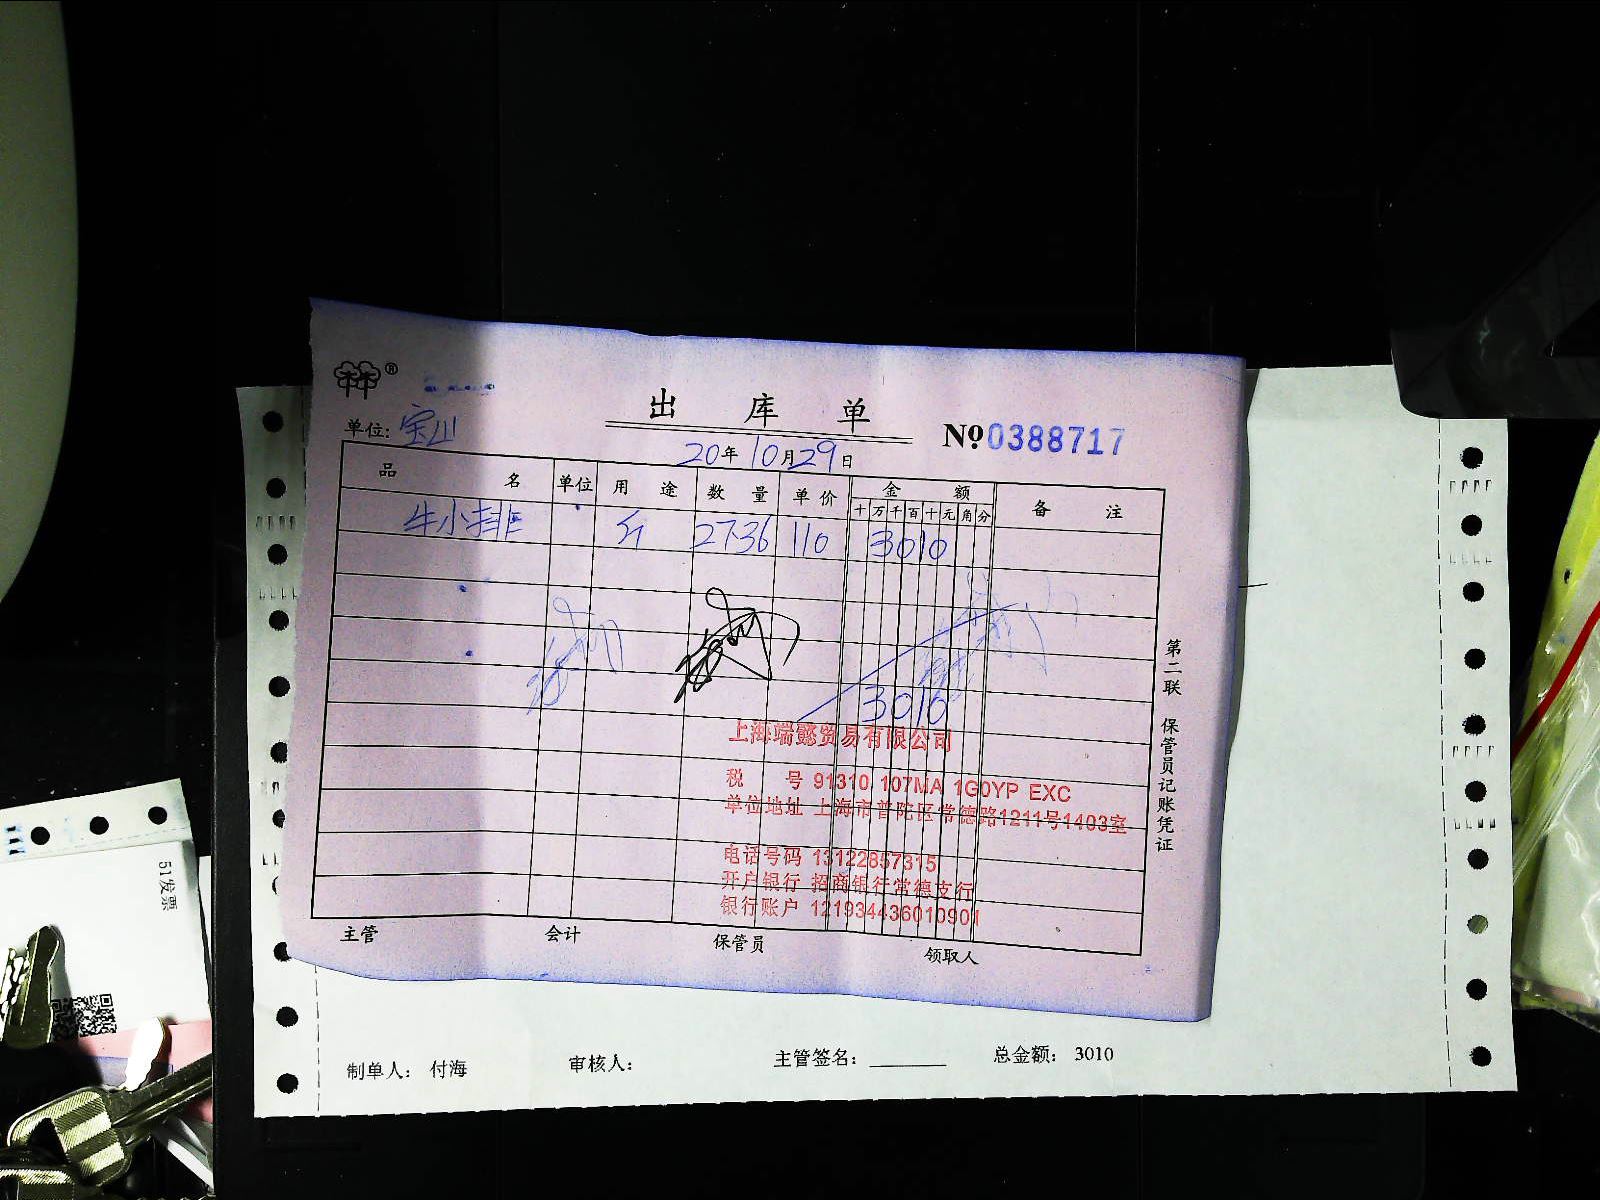 ®
出 库 单
№ 0388717
单位: 宝山
20年10月29日
品 名 单位 用 途 数 量 单 价 金 额 备 注
十 万 千 百 十 元 角 分
牛小排 斤 27.36 110 3010
3010
上海端懿贸易有限公司
税 号 91310 107MA 1G0YP EXC
单位地址 上海市普陀区常德路1211号1403室
电话号码 13122857315
开户银行 招商银行常德支行
银行账户 121934436010901
主管 会计 保管员 领取人
第二联 保管员记账凭证
制单人: 付海 审核人: 主管签名: 总金额: 3010
51发票